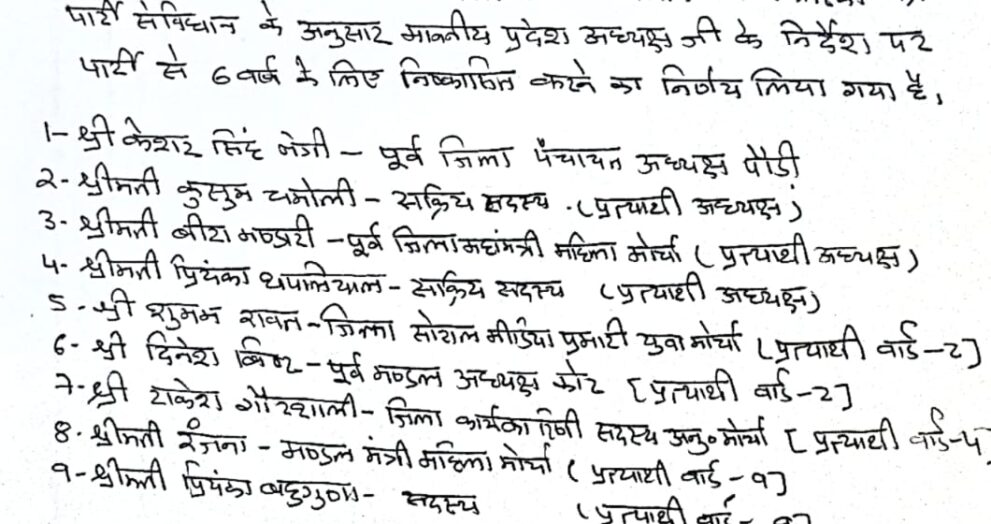 पार्टी संविधान के अनुसार माननीय प्रदेश अध्यक्ष जी के निर्देश पर
पार्टी से 6 वर्ष के लिए निष्कासित करने का निर्णय लिया गया है,
1- श्री केशर सिंह नेगी - पूर्व जिला पंचायत अध्यक्ष पौडी
2- श्रीमती कुसुम चमोली - सक्रिय सदस्य . (प्रत्याशी अध्यक्ष)
3- श्रीमती बीरा भण्डारी - पूर्व जिला महामंत्री महिला मोर्चा ( प्रत्याशी अध्यक्ष )
4- श्रीमती प्रियंका थपलियाल - सक्रिय सदस्य (प्रत्याशी अध्यक्ष)
5 - श्री शुभम रावत - जिला सोशल मीडिया प्रभारी युवा मोर्चा (प्रत्याशी वार्ड-2]
6- श्री दिनेश बिष्ट - पूर्व मण्डल अध्यक्ष कोट [प्रत्याशी वार्ड-2]
7- श्री राकेश गौरशाली - जिला कार्यकारिणी सदस्य अनु० मोर्चा [ प्रत्याशी वार्ड-4]
8- श्रीमती रंजना - मण्डल मंत्री महिला मोर्चा ( प्रत्याशी वार्ड - 9]
9- श्रीमती प्रियंका बहुगुणा - सदस्य (प्रत्याशी वार्ड -